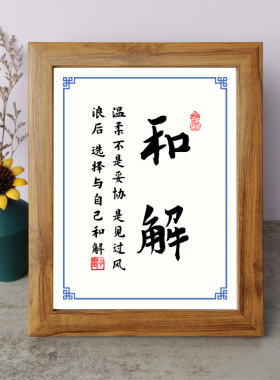 和解
温柔不是妥协 是见过风
浪后 选择与自己和解